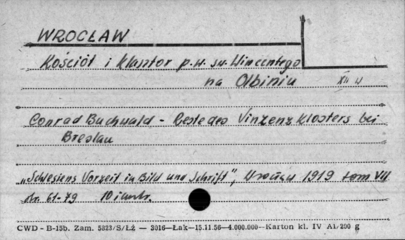 WROCŁAW
Kościół i klasztor p.w. św. Wincentego
na Ołbiniu XII w
Conrad Buchwald - Reste des Vinzenz Klosters bei
Breslau
"Schlesiens Vorzeit in Bild und Schrift", Wrocław 1919 tom VII
str. 61-79 10 ilustr.
CWD - B-15b. Zam. 5323/S/Łż — 2016—Łak—15.11.56—4.000.000—Karton kl. IV A1/200 g